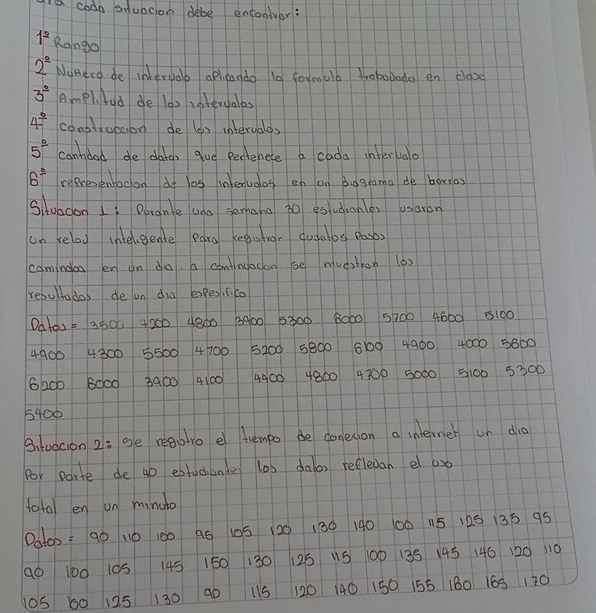 cada situacion debe encontrar:
1º Rango
2º Numero de intervalo aplicando la formula trabajada en clase
3º Amplitud de los intervalos
4º construccion de los intervalos
5º cantidad de datos que pertenece a cada intervalo
6º representacion de los intervalos en un diagrama de barras
Situacion 1: Durante una semana 30 estudiantes usaron
un reloj inteligente para registrar cuantos pasos
camindaa en un dia a continuacion se muestran los
resultados de un dia espesifico
Datos= 3500 4200 4800 3900 5300 6000 5700 4600 5100
4900 4300 5500 4700 5200 5800 6100 4900 4000 5600
6200 6000 3900 4100 4400 4800 4700 5000 5100 5300
5400
Situacion 2: se registro el tiempo de conexion a internet un dia
por parte de 40 estudiantes los datos reflejan el uso
total en un minuto
Datos= 90 110 100 95 105 120 130 140 100 115 125 135 95
90 100 105 145 150 130 125 115 100 135 145 140 120 110
105 60 125 130 90 115 120 140 150 155 160 165 170